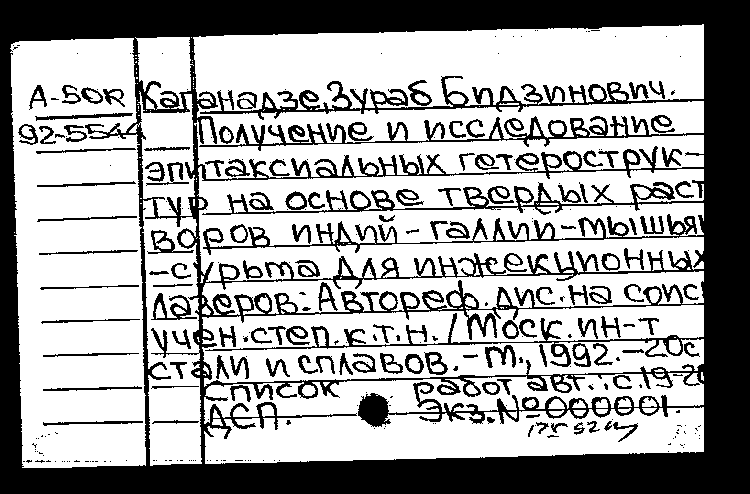 А-50к Капанадзе, Зураб Бидзинович.
92-5544 Получение и исследование
эпитаксиальных гетерострук-
тур на основе твердых раст
воров индий-галлий-мышьяк
-сурьма для инжекционных
лазеров: Автореф. дис. на соиск
учен. степ. к.т.н. / Моск. ин-т
стали и сплавов. - М., 1992. - 20с
Список работ авт.: с. 19-20
ДСП. Экз. № 000001.